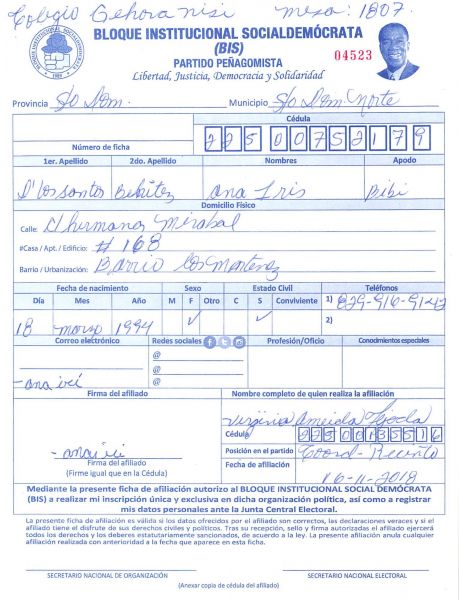 Colegio Gehora nisi Mesa: 1807.
BLOQUE INSTITUCIONAL SOCIALDEMÓCRATA
(BIS)
04523
PARTIDO PEÑAGOMISTA
Libertad, Justicia, Democracia y Solidaridad
Provincia S/o Dom. Municipio S/o Dom. Norte
Cédula
Número de ficha 225 0075217 9
1er. Apellido 2do. Apellido Nombres Apodo
D'los santos Benitez ana Iris Bibi
Domicilio Físico
Calle: C/ hermanas Mirabal
#Casa / Apt. / Edificio: # 168
Barrio / Urbanización: Barrio los Montenez
Fecha de nacimiento Sexo Estado Civil Teléfonos
Día Mes Año M F Otro C S Conviviente 1) 829-916-9142
18 marso 1994 ✓ ✓ 2)
Correo electrónico Redes sociales Profesión/Oficio Conocimientos especiales
@
@
@
Firma del afiliado Nombre completo de quien realiza la afiliación
Virginia Almeida
Cédula 223 0013551 6
Posición en el partido Coord- Recinto
Firma del afiliado
(Firme igual que en la Cédula)
Fecha de afiliación 16-11-2018
Mediante la presente ficha de afiliación autorizo al BLOQUE INSTITUCIONAL SOCIAL DEMÓCRATA
(BIS) a realizar mi inscripción única y exclusiva en dicha organización política, así como a registrar
mis datos personales ante la Junta Central Electoral.
La presente ficha de afiliación es válida si los datos ofrecidos por el afiliado son correctos, las declaraciones veraces y si el
afiliado tiene el disfrute de sus derechos civiles y políticos. Tras su recepción, sello y firma autorizados el afiliado ejercerá
todos los derechos y los deberes estatutariamente sancionados, de acuerdo a la ley. La presente afiliación anula cualquier
afiliación realizada con anterioridad a la fecha que aparece en esta ficha.
SECRETARIO NACIONAL DE ORGANIZACIÓN SECRETARIO NACIONAL ELECTORAL
(Anexar copia de cédula del afiliado)